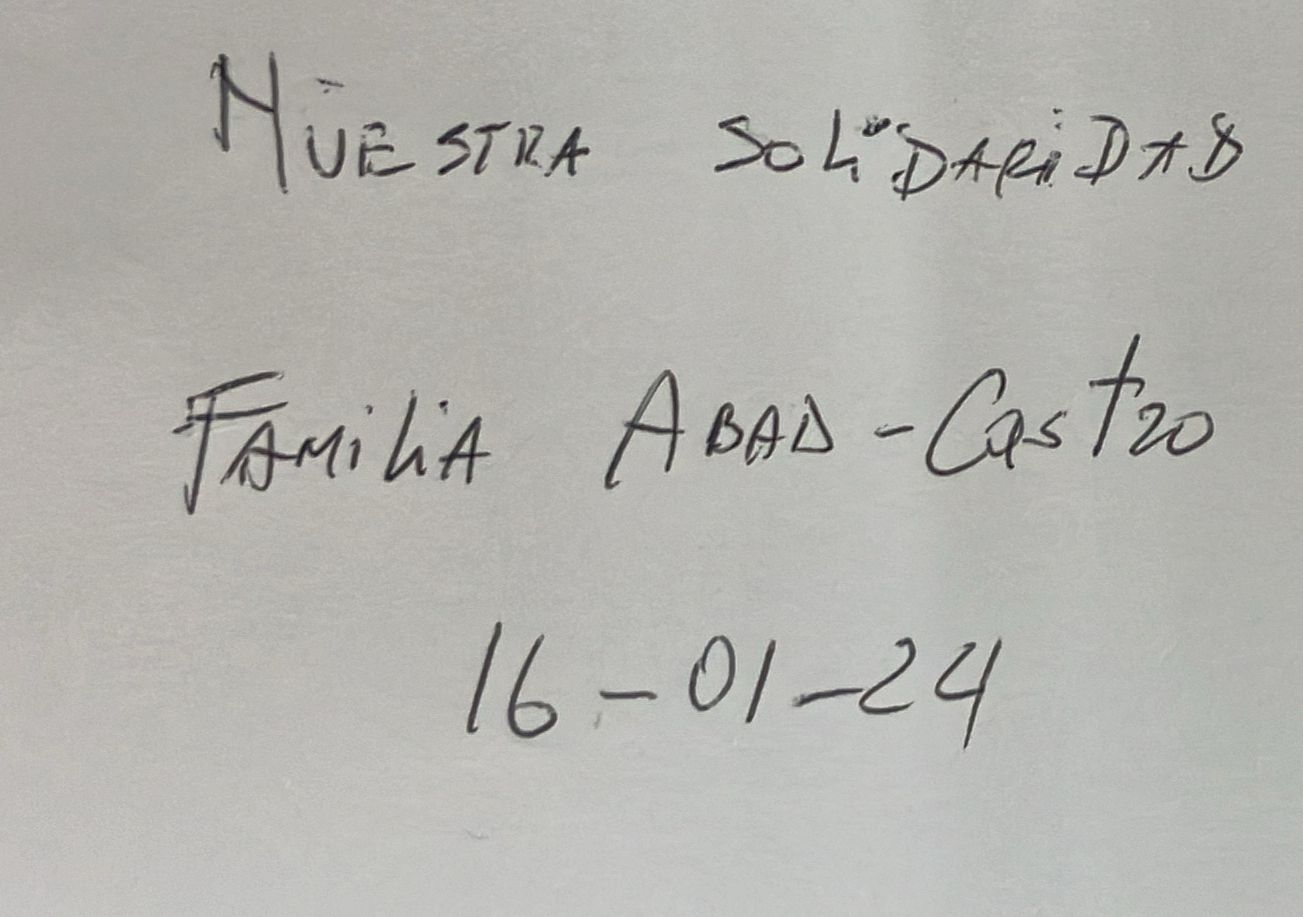 NUESTRA SOLiDARiDAD
FAMiLiA ABAD - Castro
16-01-24